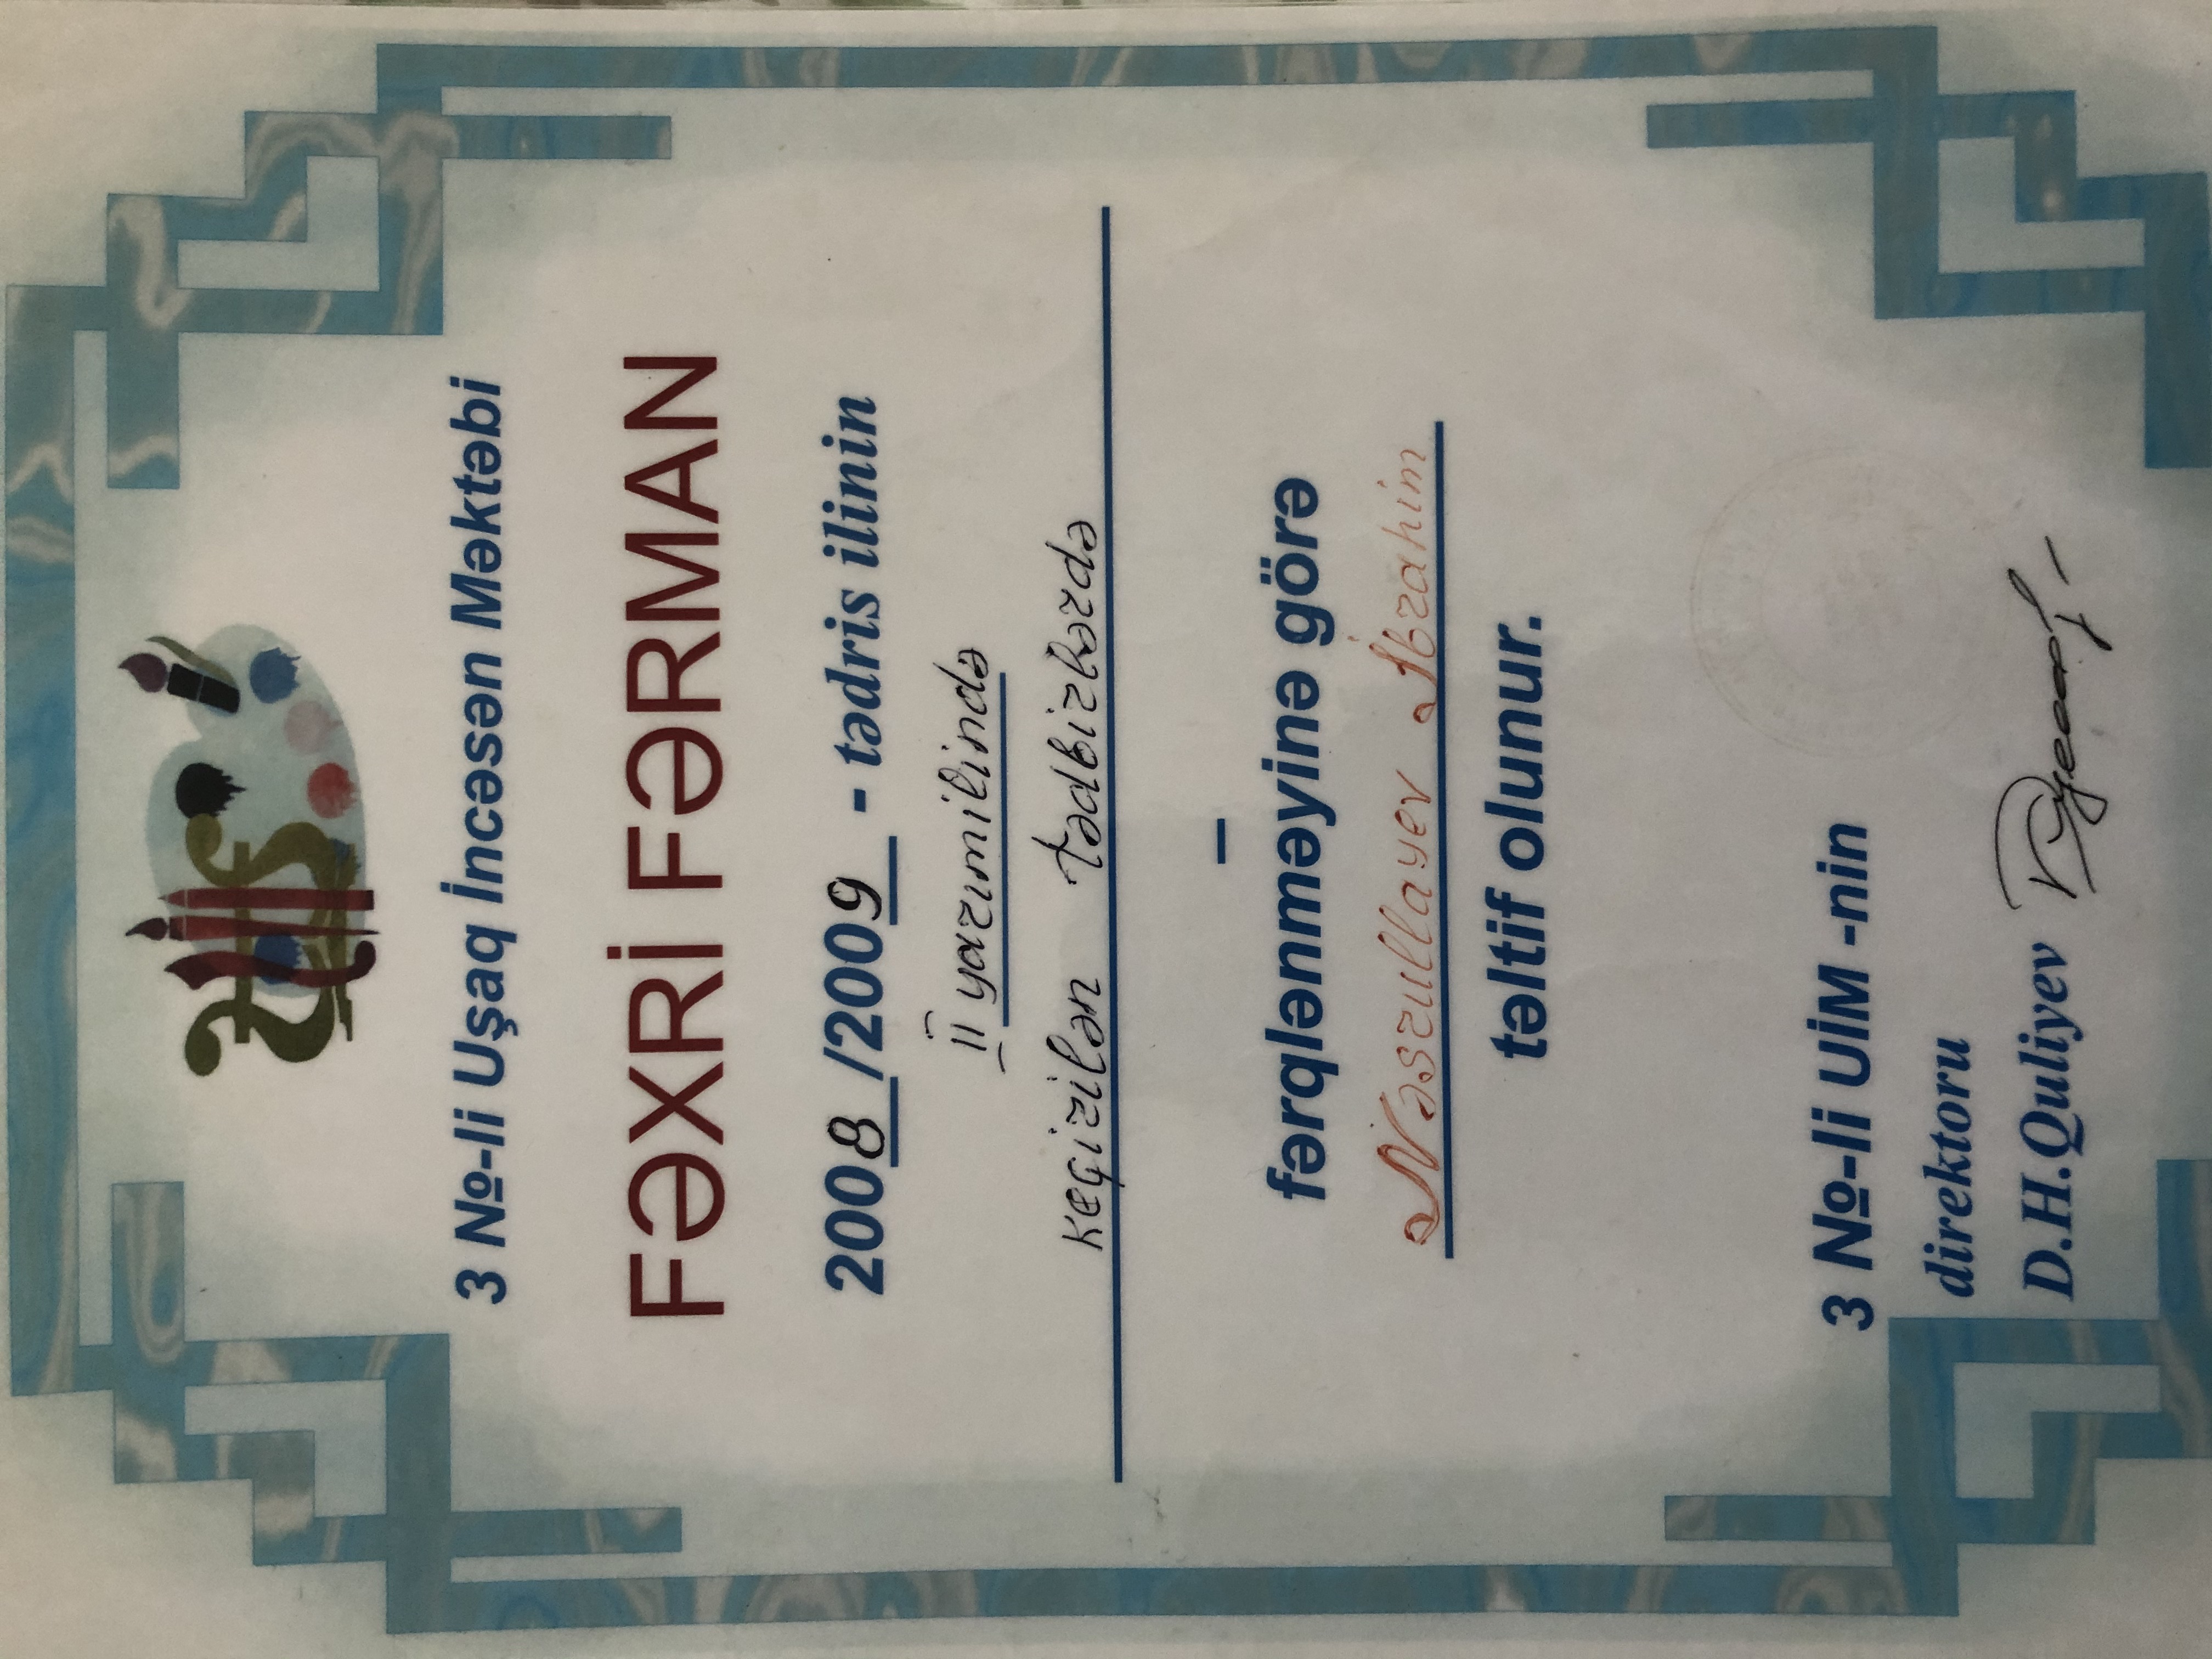 3 №-li Uşaq İncəsən Məktəbi
FƏXRİ FƏRMAN
2008 /2009 - tədris ilinin
II yarımilində
keçirilən tədbirlərdə
–
fərqlənməyinə görə
Nəsrullayev İbrahim
təltif olunur.
3 №-li UİM -nin
direktoru
D.H.Quliyev